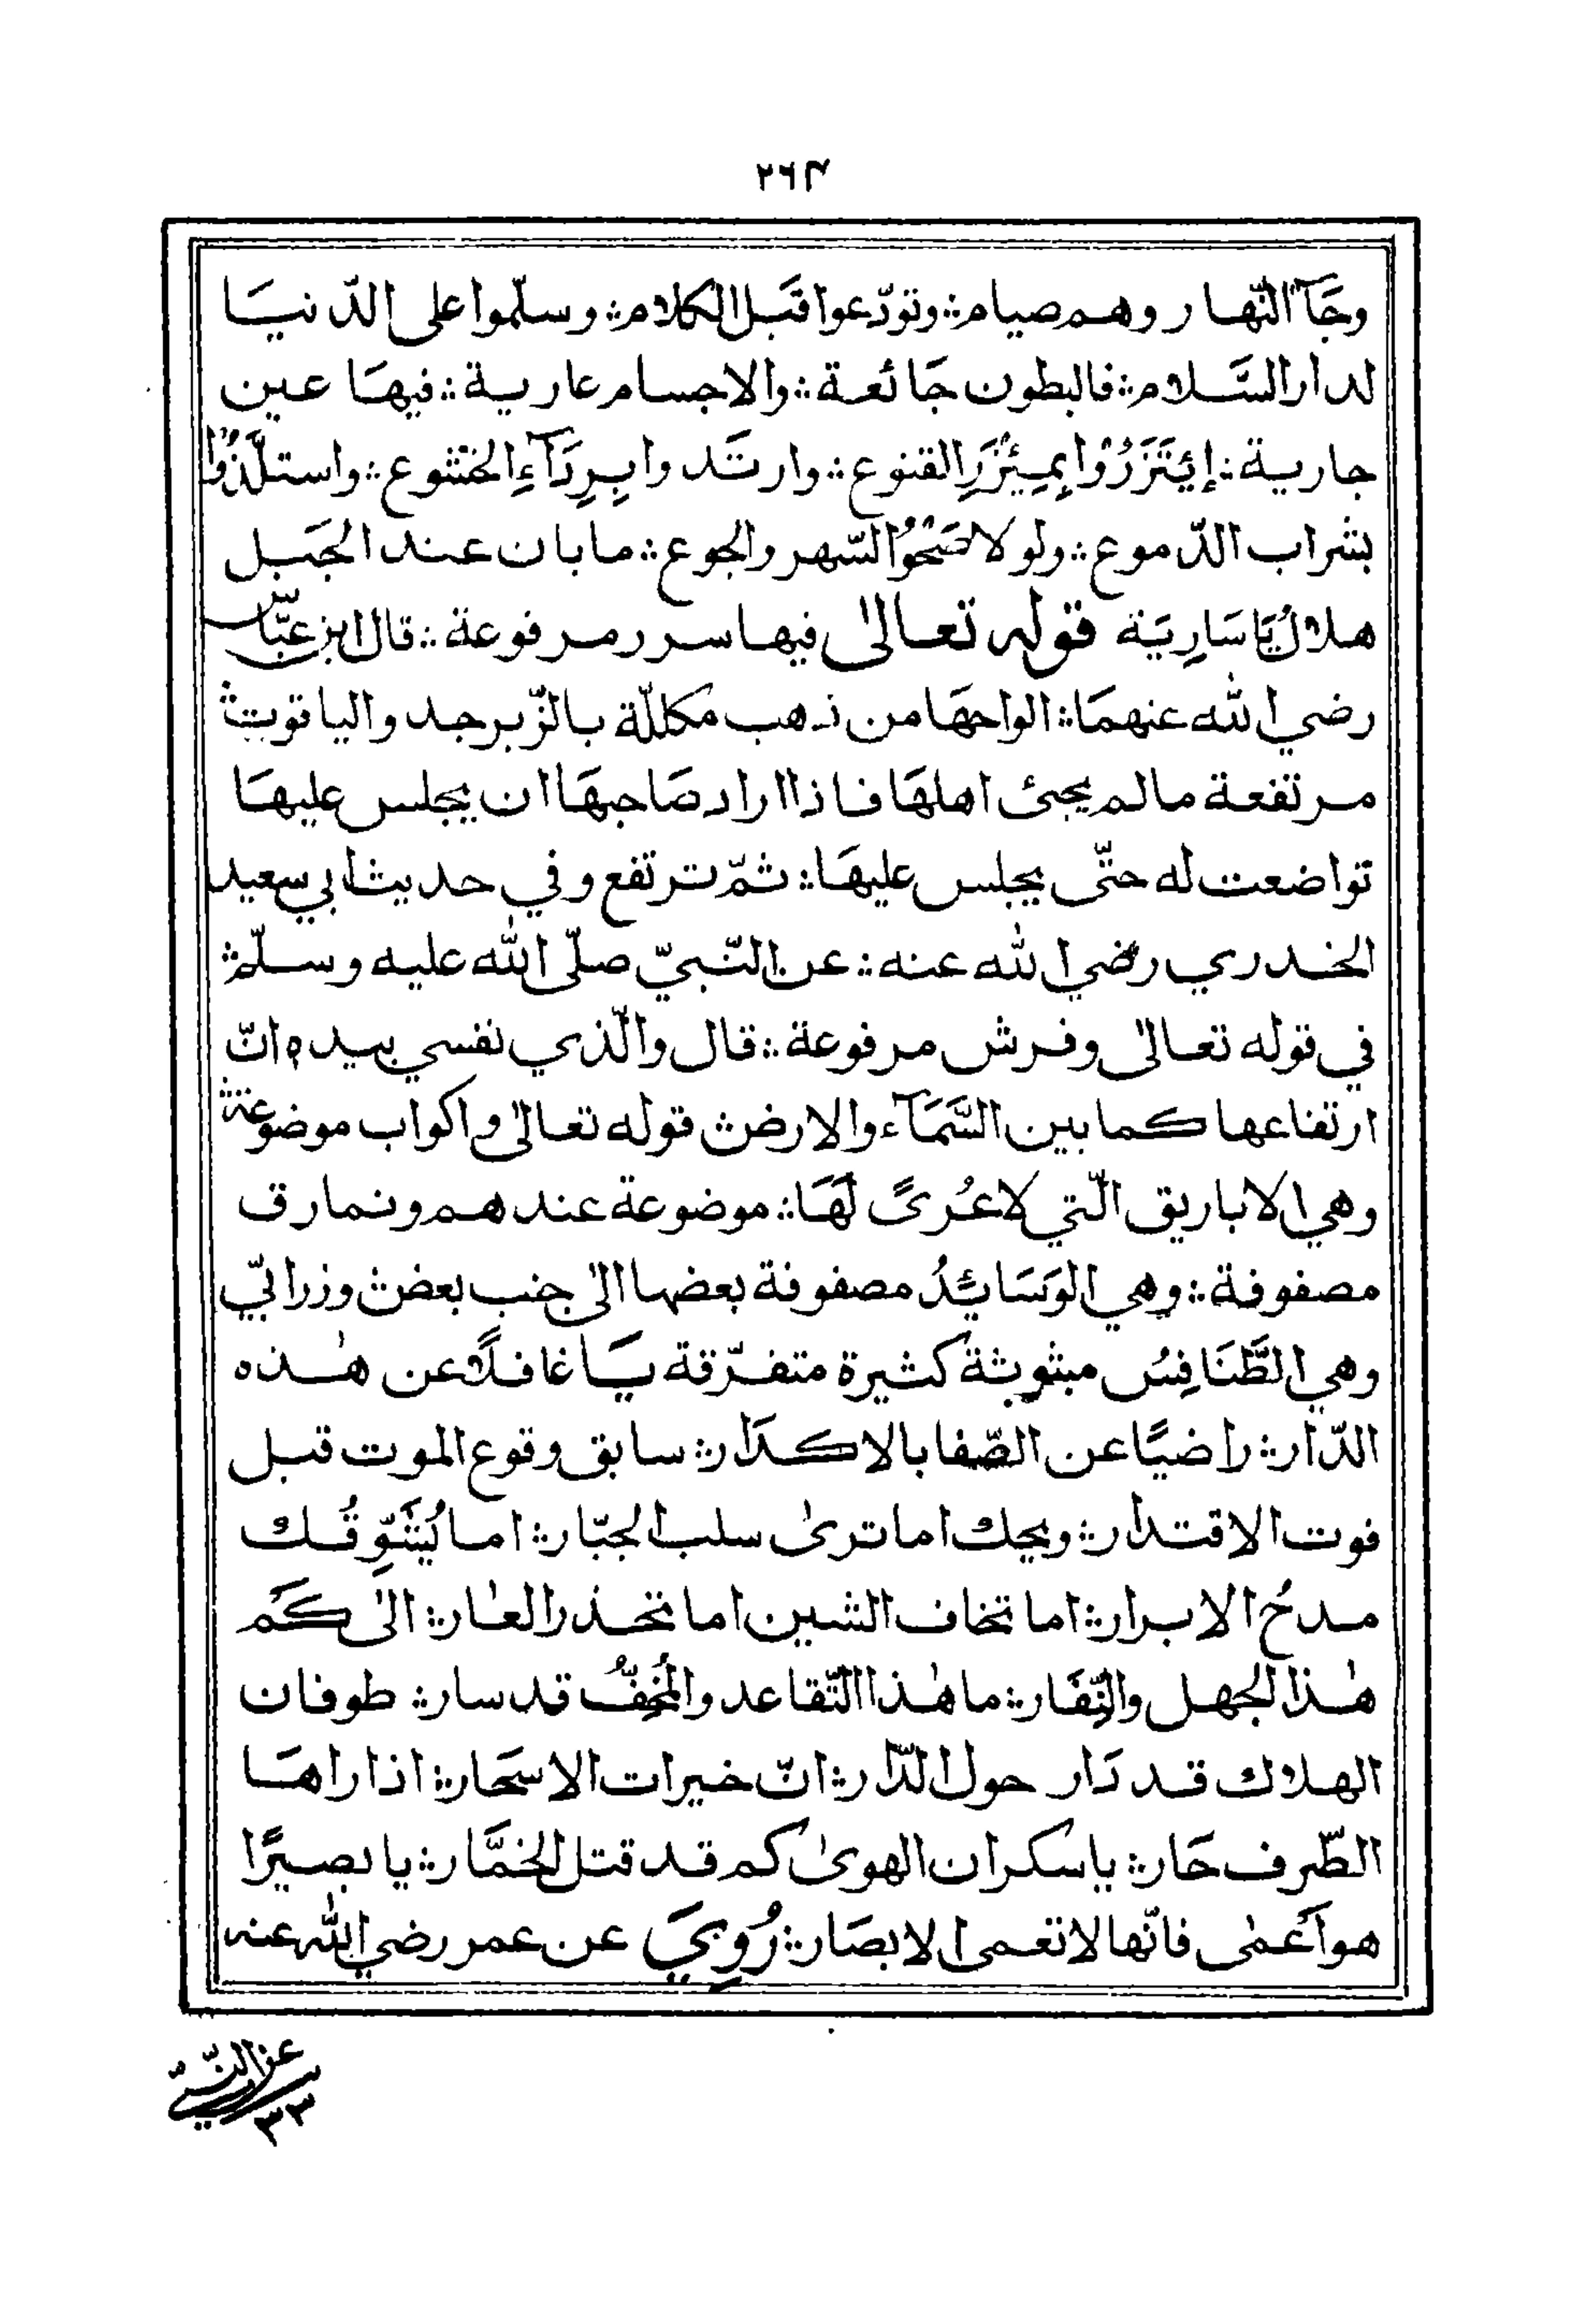 ٢٦٣
وجَآءَ النّهار وهم صيام؞ وتودّعوا قبَل الكلام؞ وسلّموا على الدّنيَا
لدار السَّلام؞ فالبطون جَائعة؞ والاجسام عارية؞ فيهَا عين
جارية؞ إِيْتَزَرُوْا بِمِيْئزَرِ القنوع؞ وارتَدوا بِرِدَآءِ الخشوع؞ واستلَّذُوْا
بشراب الدّموع؞ ولولا صَحْوُ السّهر والجوع؞ ما بان عند الجبَل
هلالُ يَا سَارِيَة قوله تعالىٰ فيها سرر مرفوعة؞ قال ابن عبّاس
رضي الله عنهمَا؞ الواحهَا من ذهب مكلّلة بالزّبرجد والياقوت؞
مرتفعة مالم يجئ اهلهَا فاذا اراد صَاحبهَا ان يجلس عليهَا
تواضعت له حتّى يجلس عليهَا؞ ثمّ ترتفع وفي حديث ابي سعيد
الخدري رضي الله عنه؞ عن النّبيّ صلّى الله عليه وسلّم؞
في قوله تعالىٰ وفرش مرفوعة؞ قال والّذي نفسي بيده انّ
ارتفاعها كما بين السَّمَآء والارض؞ قوله تعالىٰ واكواب موضوعة؞
وهي الاباريق الّتي لا عُرىً لَهَا؞ موضوعة عندهم ونمارق
مصفوفة؞ وهي الوَسَائِدُ مصفوفة بعضها الىٰ جنب بعض؞ وزرابّي
وهي الطَّنَافِسُ مبثوثة كثيرة متفرّقة يَا غافلًا عن هٰذه
الدّار؞ راضيًا عن الصّفا بالاكدَار؞ سابق وقوع الموت قبل
فوت الاقتدار؞ ويحك اما ترىٰ سلب الجبّار؞ اما يُشَوِّقُك
مدحُ الابرار؞ اما تخاف الشين اما تحذر العَار؞ الىٰ كَم
هٰذا الجهل والنِّفَار؞ ما هٰذا التّقاعد والمُخِفُّ قد سار؞ طوفان
الهلاك قد دَار حول الدّار؞ انّ خيرات الاسحَار؞ اذا راهَا
الطّرف حَار؞ يا سكران الهوىٰ كم قد قتل الخمَّار؞ يا بصيرًا
هو آعَمٰى فانّها لا تعمى الابصَار؞ رُوِيَ عن عمر رضي الله عنه
٣٣